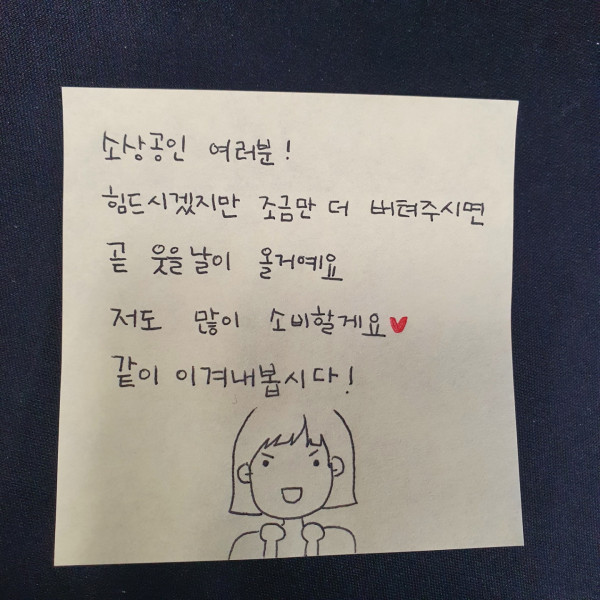 소상공인 여러분!
힘드시겠지만 조금만 더 버텨주시면
곧 웃을날이 올거예요
저도 많이 소비할게요♥
같이 이겨내봅시다!